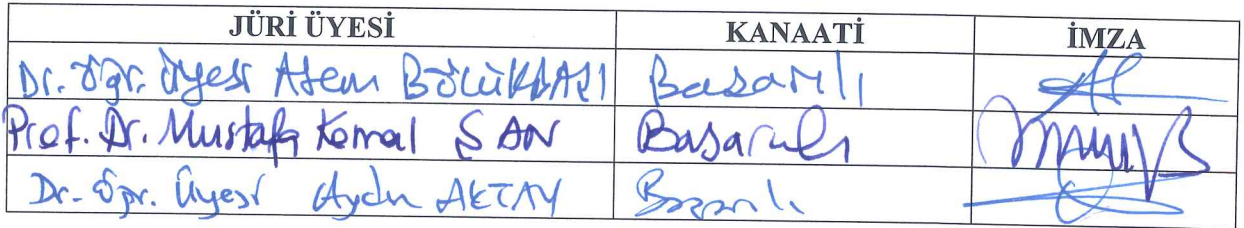 JÜRİ ÜYESİ KANAATİ İMZA
Dr. Öğr. Üyesi Adem BÖLÜKBAŞI Başarılı
Prof. Dr. Mustafa Kemal ŞAN Başarılı
Dr. Öğr. Üyesi Aydın AKTAY Başarılı